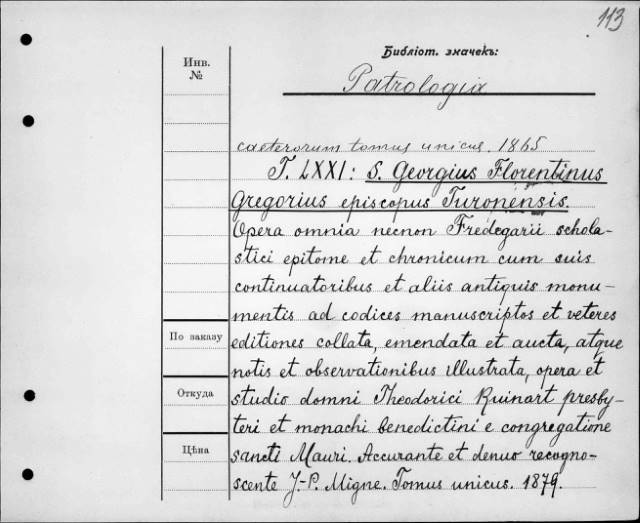 113
Библіот. значекъ:
Инв.
№
Patrologia
caeterorum tomus unicus. 1865
T. LXXI: S. Georgius Florentinus
Gregorius episcopus Turonensis.
Opera omnia necnon Fredegarii schola-
stici epitome et chronicum cum suis
continuatoribus et aliis antiquis monu-
mentis ad codices manuscriptos et veteres
По заказу
editiones collata, emendata et aucta, atque
notis et observationibus illustrata, opera et
Откуда
studio domni Theodorici Ruinart presby-
teri et monachi benedictini e congregatione
Цѣна
sancti Mauri. Accurante et denuo recogno-
scente J.-P. Migne. Tomus unicus. 1879.